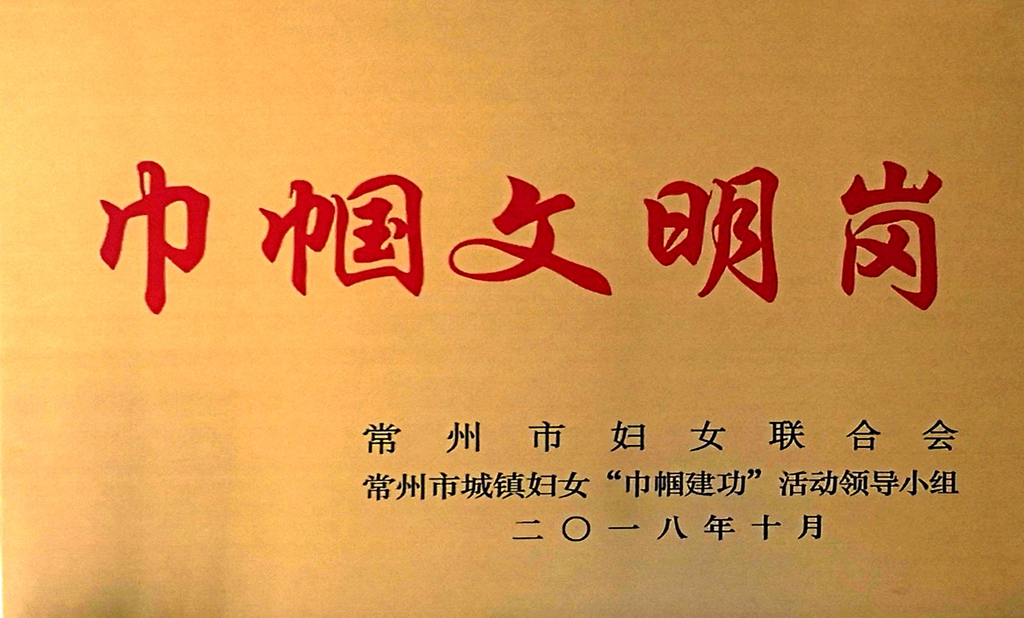 巾帼文明岗
常州市妇女联合会
常州市城镇妇女“巾帼建功”活动领导小组
二〇一八年十月